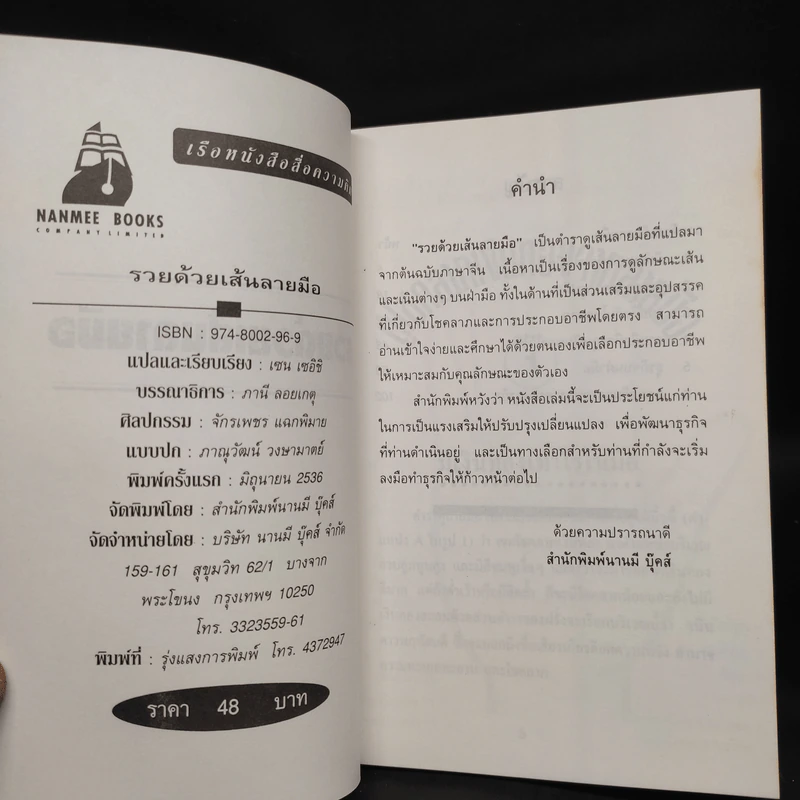 เรือหนังสือสื่อความคิด
NANMEE BOOKS
COMPANY LIMITED
รวยด้วยเส้นลายมือ
ISBN : 974-8002-96-9
แปลและเรียบเรียง : เซน เซอิชิ
บรรณาธิการ : ภานี ลอยเกตุ
ศิลปกรรม : จักรเพชร แฉกพิมาย
แบบปก : ภาณุวัฒน์ วงษามาตย์
พิมพ์ครั้งแรก : มิถุนายน 2536
จัดพิมพ์โดย : สำนักพิมพ์นานมี บุ๊คส์
จัดจำหน่ายโดย : บริษัท นานมี บุ๊คส์ จำกัด
159-161 สุขุมวิท 62/1 บางจาก
พระโขนง กรุงเทพฯ 10250
โทร. 3323559-61
พิมพ์ที่ : รุ่งแสงการพิมพ์ โทร. 4372947
ราคา 48 บาท
คำนำ
"รวยด้วยเส้นลายมือ" เป็นตำราดูเส้นลายมือที่แปลมา
จากต้นฉบับภาษาจีน เนื้อหาเป็นเรื่องของการดูลักษณะเส้น
และเนินต่างๆ บนฝ่ามือ ทั้งในด้านที่เป็นส่วนเสริมและอุปสรรค
ที่เกี่ยวกับโชคลาภและการประกอบอาชีพโดยตรง สามารถ
อ่านเข้าใจง่ายและศึกษาได้ด้วยตนเองเพื่อเลือกประกอบอาชีพ
ให้เหมาะสมกับคุณลักษณะของตัวเอง
สำนักพิมพ์หวังว่า หนังสือเล่มนี้จะเป็นประโยชน์แก่ท่าน
ในการเป็นแรงเสริมให้ปรับปรุงเปลี่ยนแปลง เพื่อพัฒนาธุรกิจ
ที่ท่านดำเนินอยู่ และเป็นทางเลือกสำหรับท่านที่กำลังจะเริ่ม
ลงมือทำธุรกิจให้ก้าวหน้าต่อไป
ด้วยความปรารถนาดี
สำนักพิมพ์นานมี บุ๊คส์